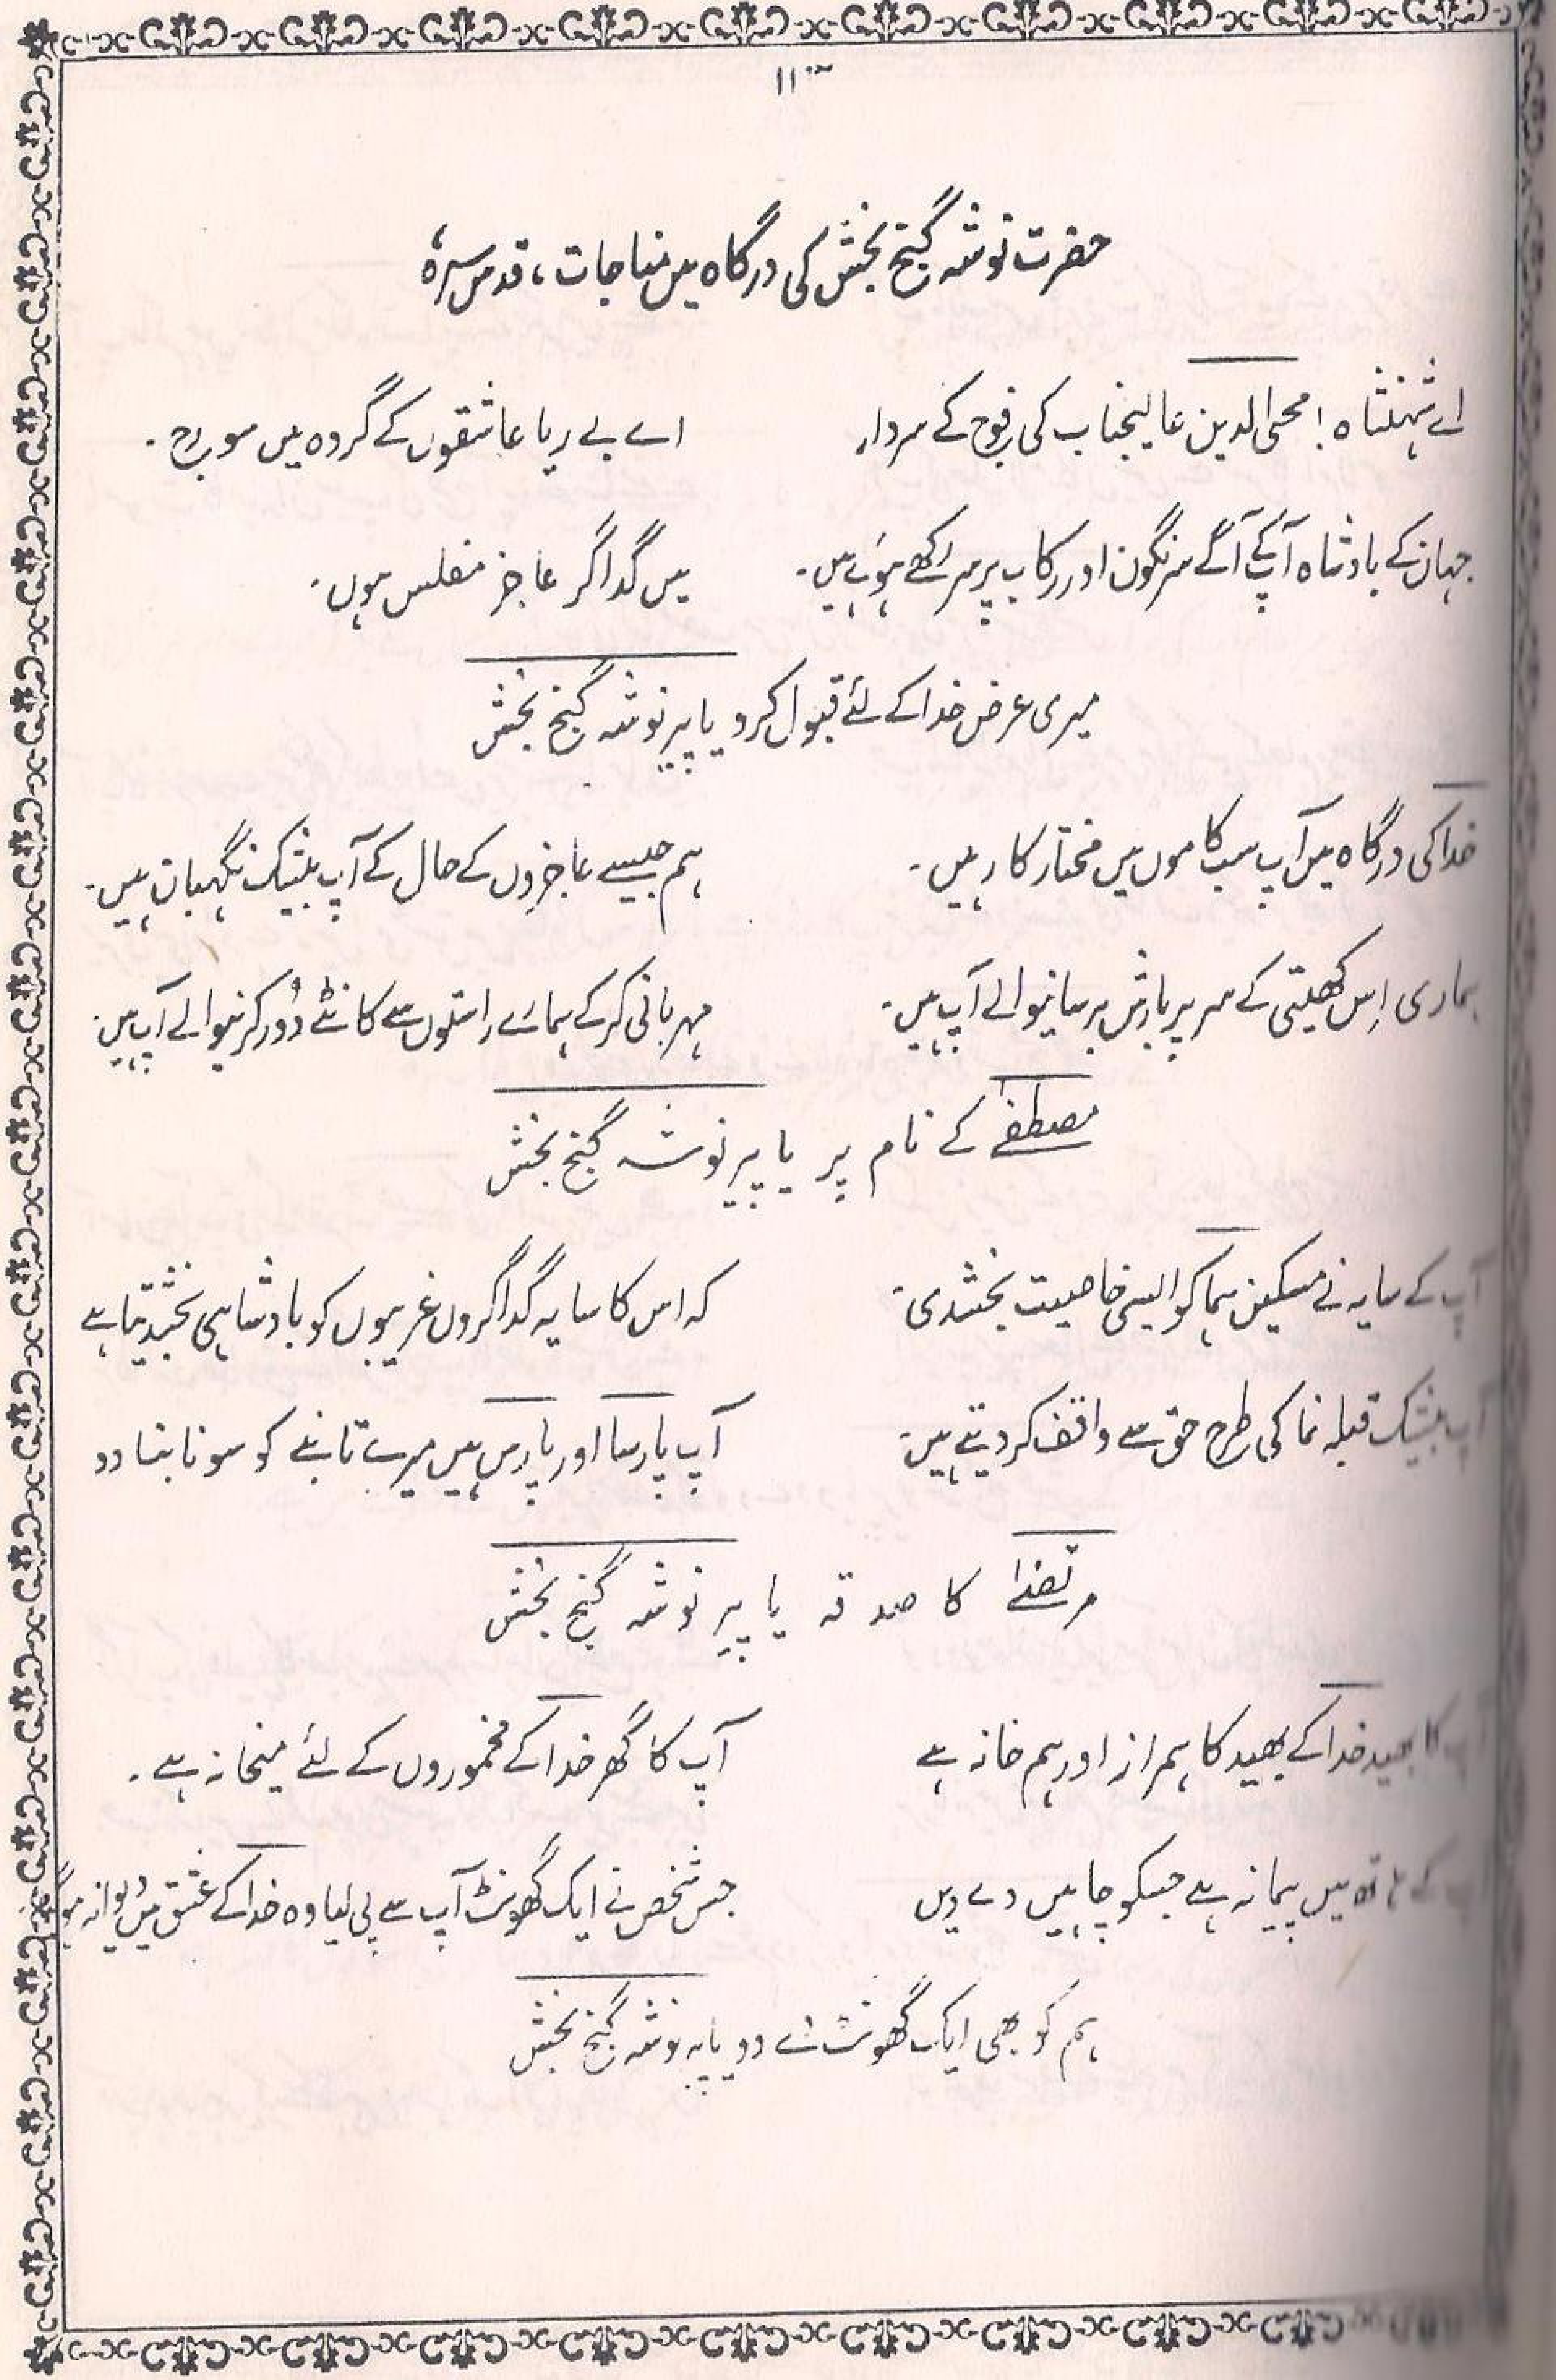 ۱۱۰
حضرت نوشہ گنج بخش کی درگاہ میں مناجات، قدس سرہٗ
اے شہنشاہ! محی الدین عالیجناب کی فوج کے سردار اے بے ریا عاشقوں کے گروہ میں سورج۔
جہان کے بادشاہ آپکے آگے سرنگون اور رکاب پر سر رکھے ہوئے ہیں۔ میں گداگر عاجز مفلس ہوں۔
میری عرض خدا کے لئے قبول کرو یا پیر نوشہ گنج بخش
خدا کی درگاہ میں آپ سب کاموں میں مختار کار ہیں۔ ہم جیسے عاجزوں کے حال کے آپ بیشک نگہبان ہیں۔
ہماری اِس کھیتی کے سر پر بارش برسانیوالے آپ ہیں۔ مہربانی کر کے ہمارے راستوں سے کانٹے دُور کرنیوالے آپ ہیں۔
مصطفےٰ کے نام پر یا پیر نوشہ گنج بخش
آپ کے سایہ نے مسکین ہما کو ایسی خاصیت بخشدی۔ کہ اس کا سایہ گداگروں غریبوں کو بادشاہی بخشدیتا ہے
آپ بیشک قبلہ نما کی طرح حق سے واقف کر دیتے ہیں۔ آپ پارسا اور پارس ہیں میرے تانبے کو سونا بنا دو
مرتضےٰ کا صدقہ یا پیر نوشہ گنج بخش
آپ کا بھید خدا کے بھید کا ہمراز اور ہم خانہ ہے آپ کا گھر خدا کے مخموروں کے لئے میخانہ ہے۔
آپ کے ہاتھ میں پیمانہ ہے جسکو چاہیں دے دیں جس شخص نے ایک گھونٹ آپ سے پی لیا وہ خدا کے عشق میں دیوانہ ہوگیا
ہم کو بھی ایک گھونٹ دے دو یا پیر نوشہ گنج بخش